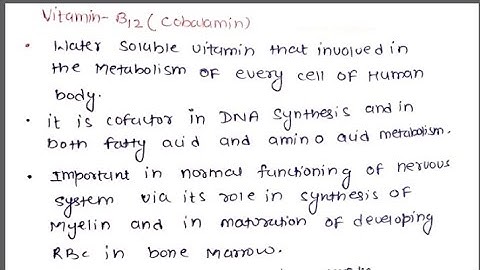 Vitamin-B12 (Cobalamin)
• Water Soluble vitamin that involved in
the Metabolism of every cell of Human
body.
• it is cofactor in DNA Synthesis and in
both fatty acid and amino acid metabolism.
• Important in normal functioning of nervous
System via its role in synthesis of
Myelin and in maturation of developing
RBC in bone Marrow.